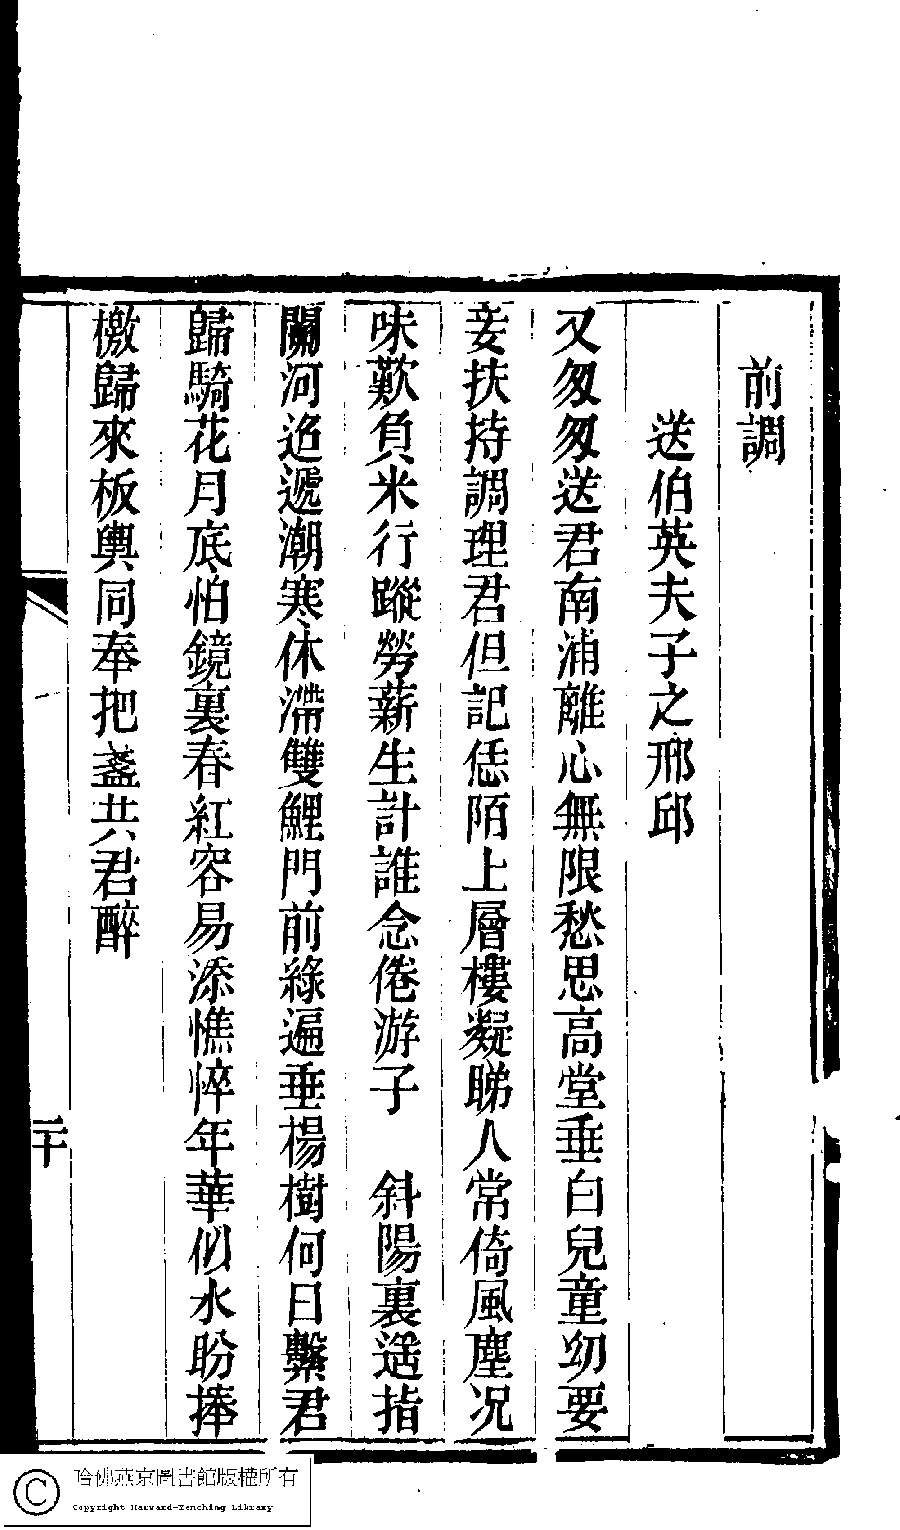 前調
送伯英夫子之邢邱
又匆匆送君南浦離心無限愁思高堂垂白兒童幼要
妾扶持調理君但記恁陌上層樓凝睇人常倚風塵况
味歎負米行蹤勞薪生計誰念倦游子　斜陽裏遥指
關河迢遞潮寒休滯雙鯉門前綠遍垂楊樹何日繫君
歸騎花月底怕鏡裏春紅容易添憔悴年華似水盼捧
檄歸來板輿同奉把盞共君醉
二十
哈佛燕京圖書館版權所有
Copyright Harvard-Yenching Library